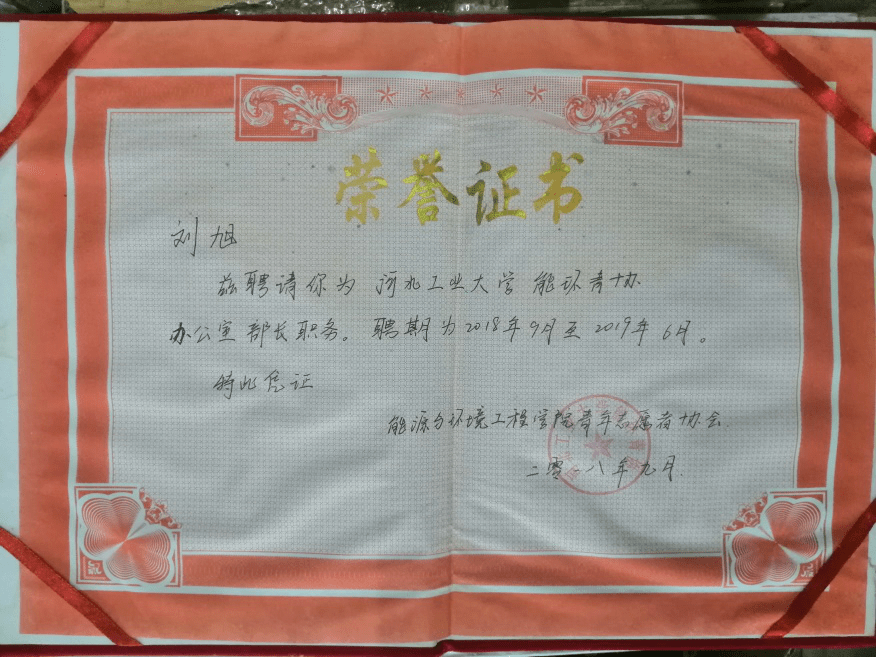 荣誉证书
刘旭
兹聘请你为 河北工业大学 能环青协
办公室 部长职务。聘期为2018年9月至2019年6月。
特此凭证
能源与环境工程学院青年志愿者协会
二零一八年九月.